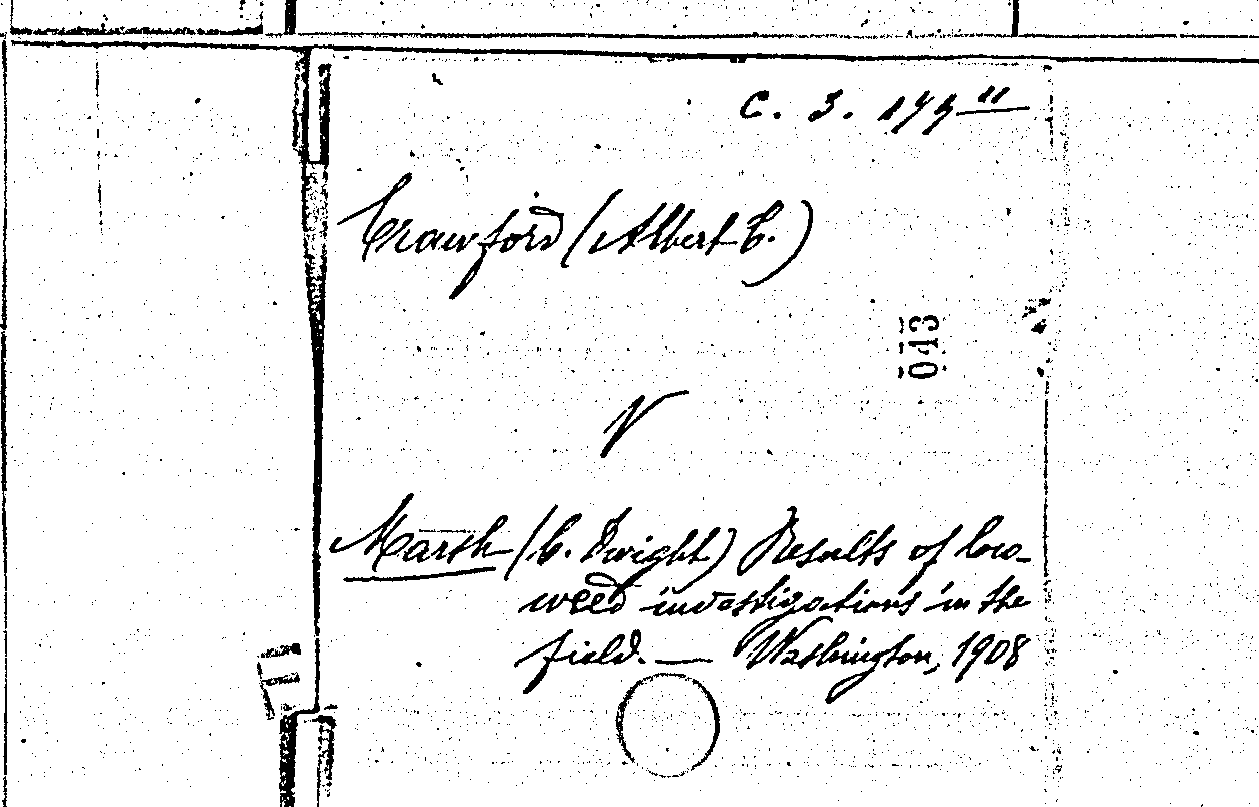 C. 3. 179"
Crawford (Albert C.)
043
V
Marsh (C. Dwight) Results of loco-
weed investigations in the
field. — Washington, 1908